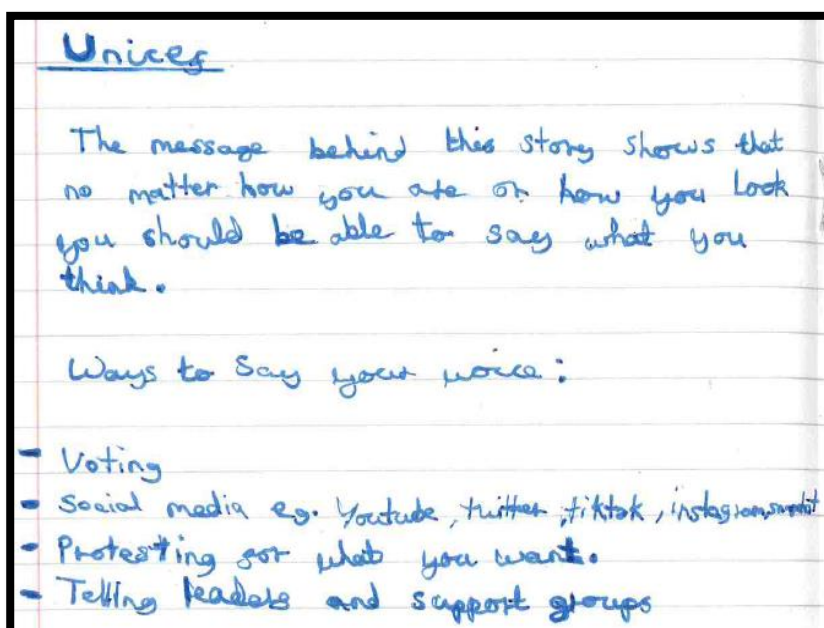 Unicef
The message behind this story shows that
no matter how you are or how you look
you should be able to say what you
think.
Ways to say your voice:
- Voting
- Social media eg. Youtube, twitter, tiktok, instagram,
- Protesting for what you want.
- Telling leaders and support groups